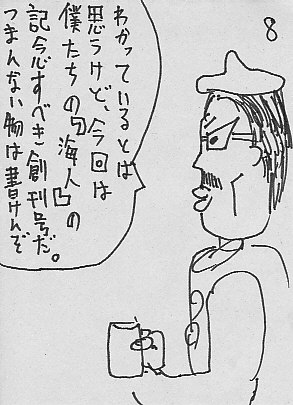 8
わかっているとは
思うけど、今回は
僕たちの『海人』の
記念すべき創刊号だ。
つまんない物は書けんぞ